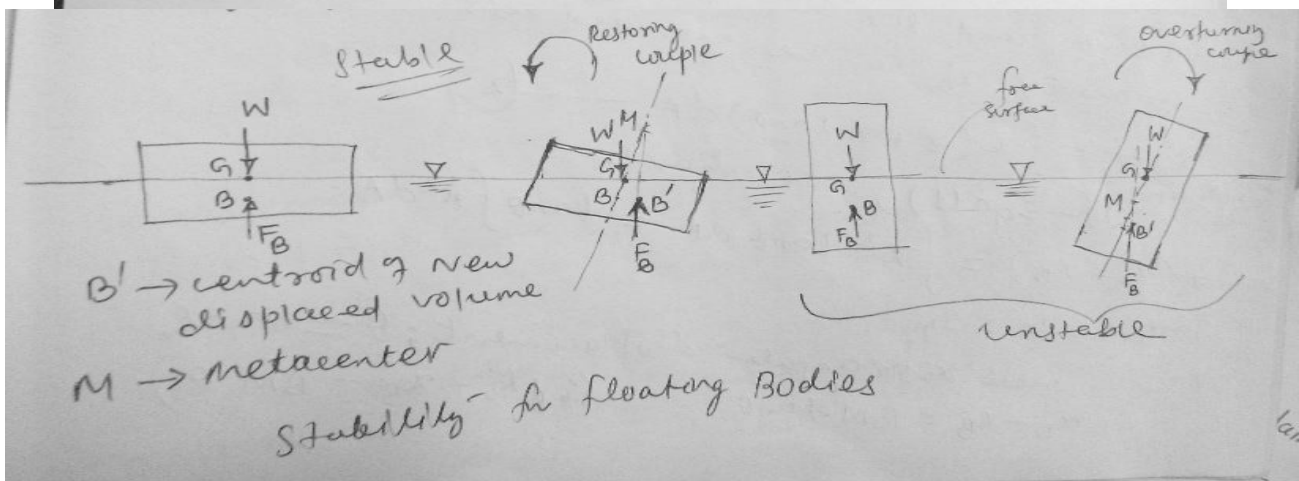 Stable
Restoring
couple
overturning
couple
free
surface
W
G
B
F_B
W M
G
B B'
F_B
W
G
B
F_B
W
G
M
B'
F_B
B' → centroid of New
displaced volume
M → Metacenter
unstable
Stability for floating Bodies